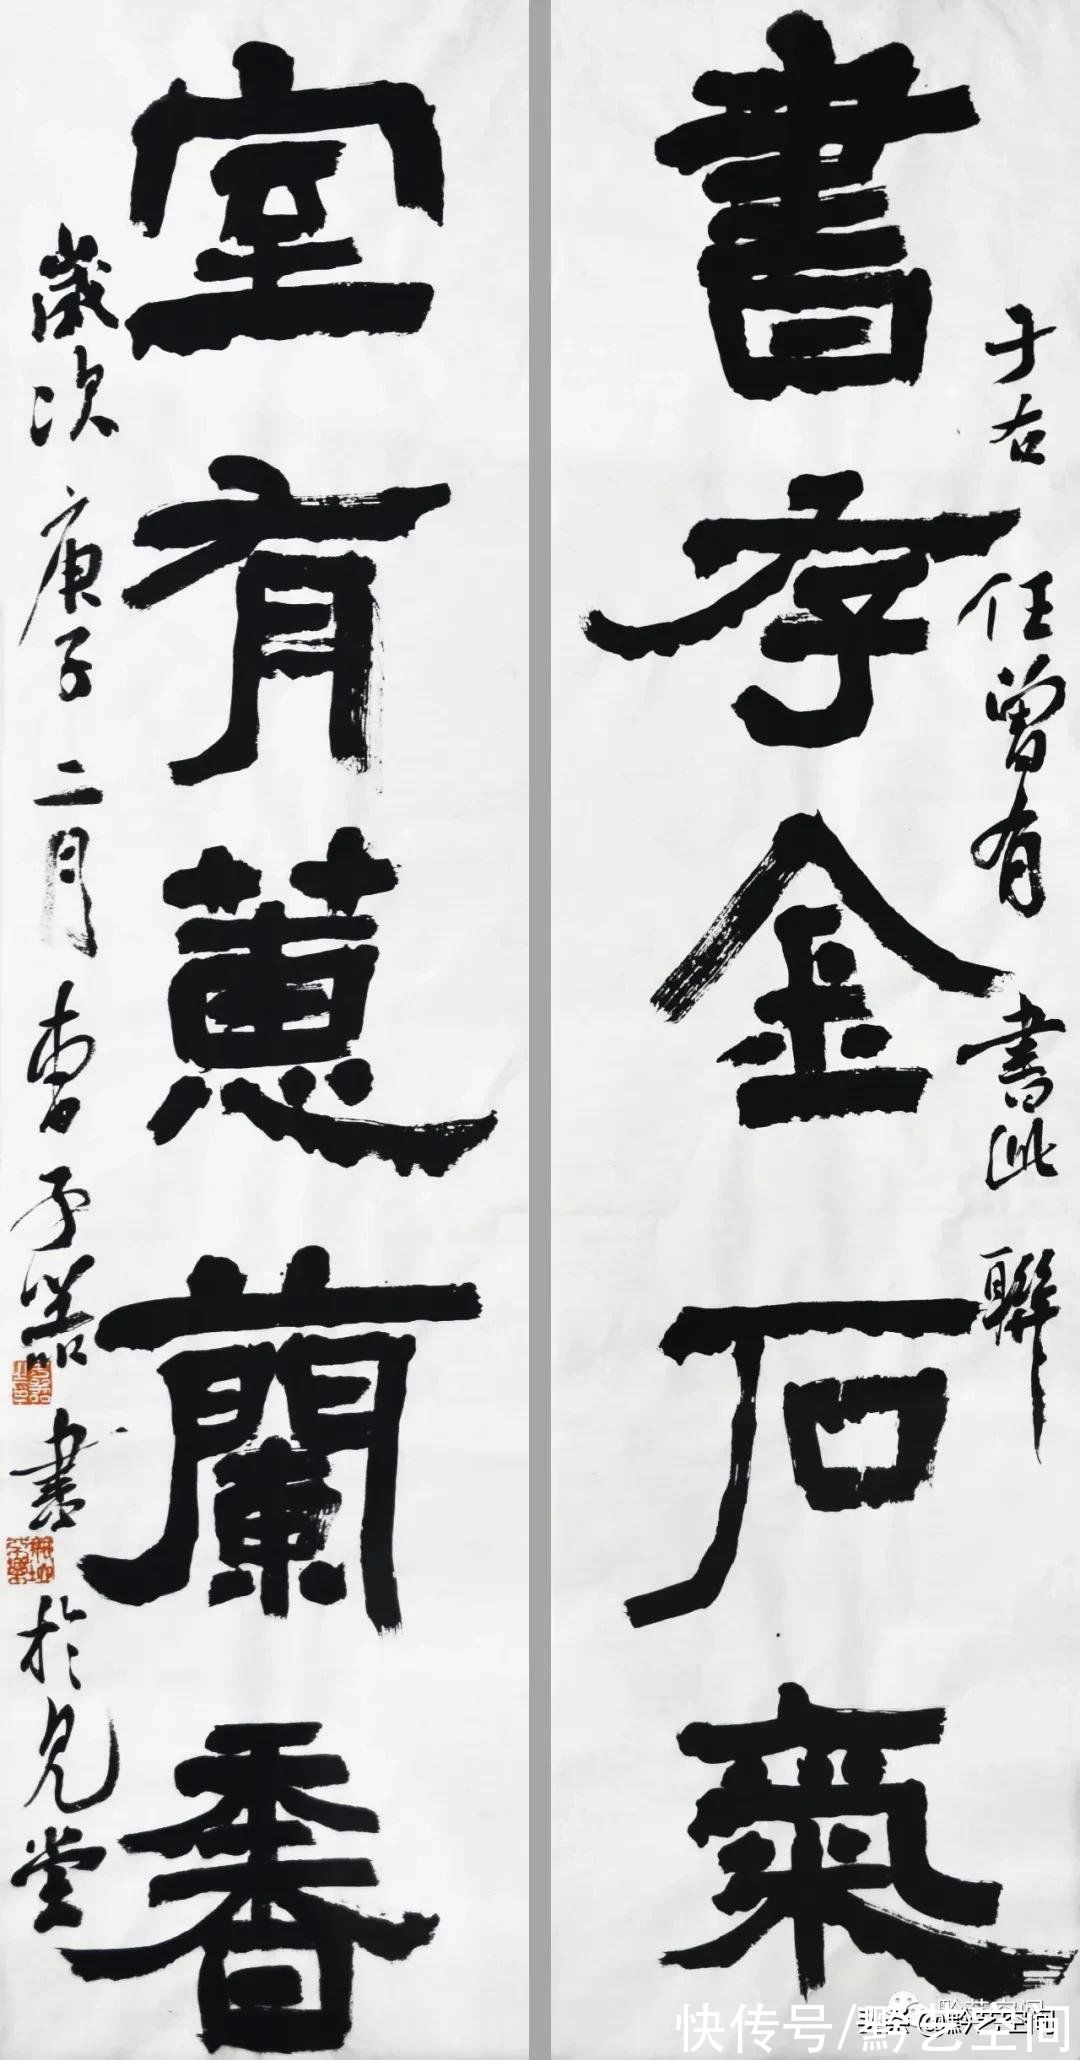 書存金石氣
于右任曾有書此聯
室有蕙蘭香
歲次庚子二月曹子器書於見堂
快传号/黔艺空间
头条 @黔艺空间